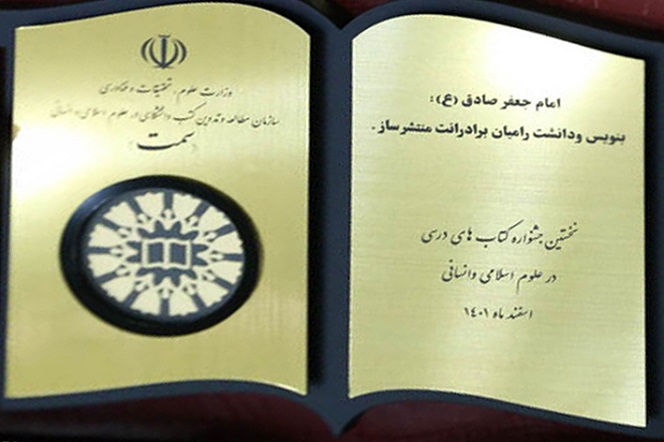 امام جعفر صادق (ع):
بنویس ودانشت رامیان برادرانت منتشرساز.
نخستین جشنواره کتاب های درسی
در علوم اسلامی وانسانی
اسفند ماه ۱۴۰۱
وزارت علوم، تحقیقات و فناوری
سازمان مطالعه و تدوین کتب دانشگاهی در علوم اسلامی و انسانی
(سمت)